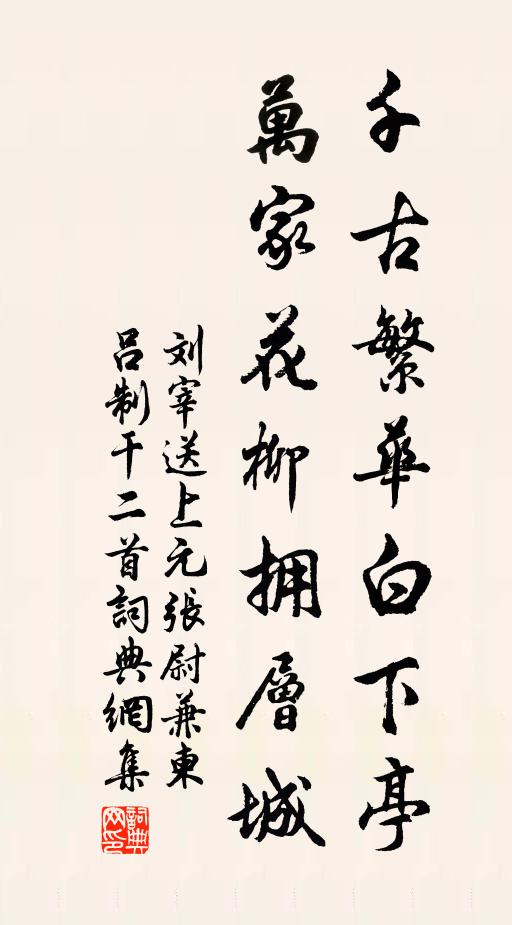 千古繁華白下亭
萬家花柳拥層城
刘宰送上元張尉兼東
吕制干二首詞典網集
詞典網印